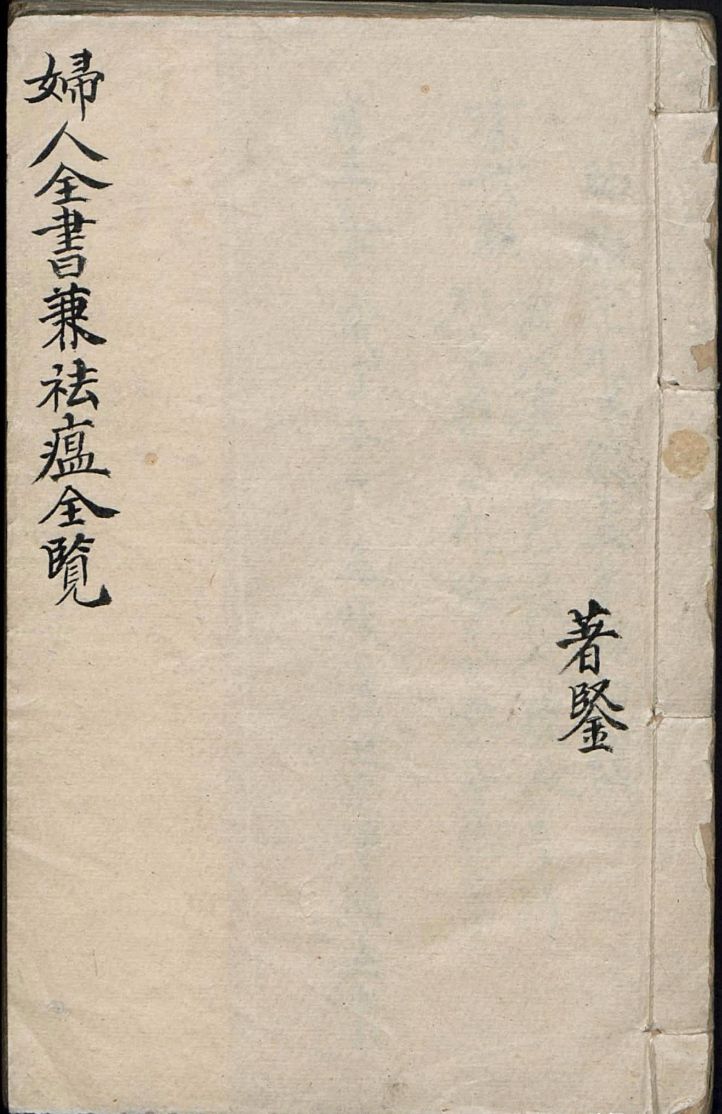 著鋻
婦人全書兼祛瘟全覧